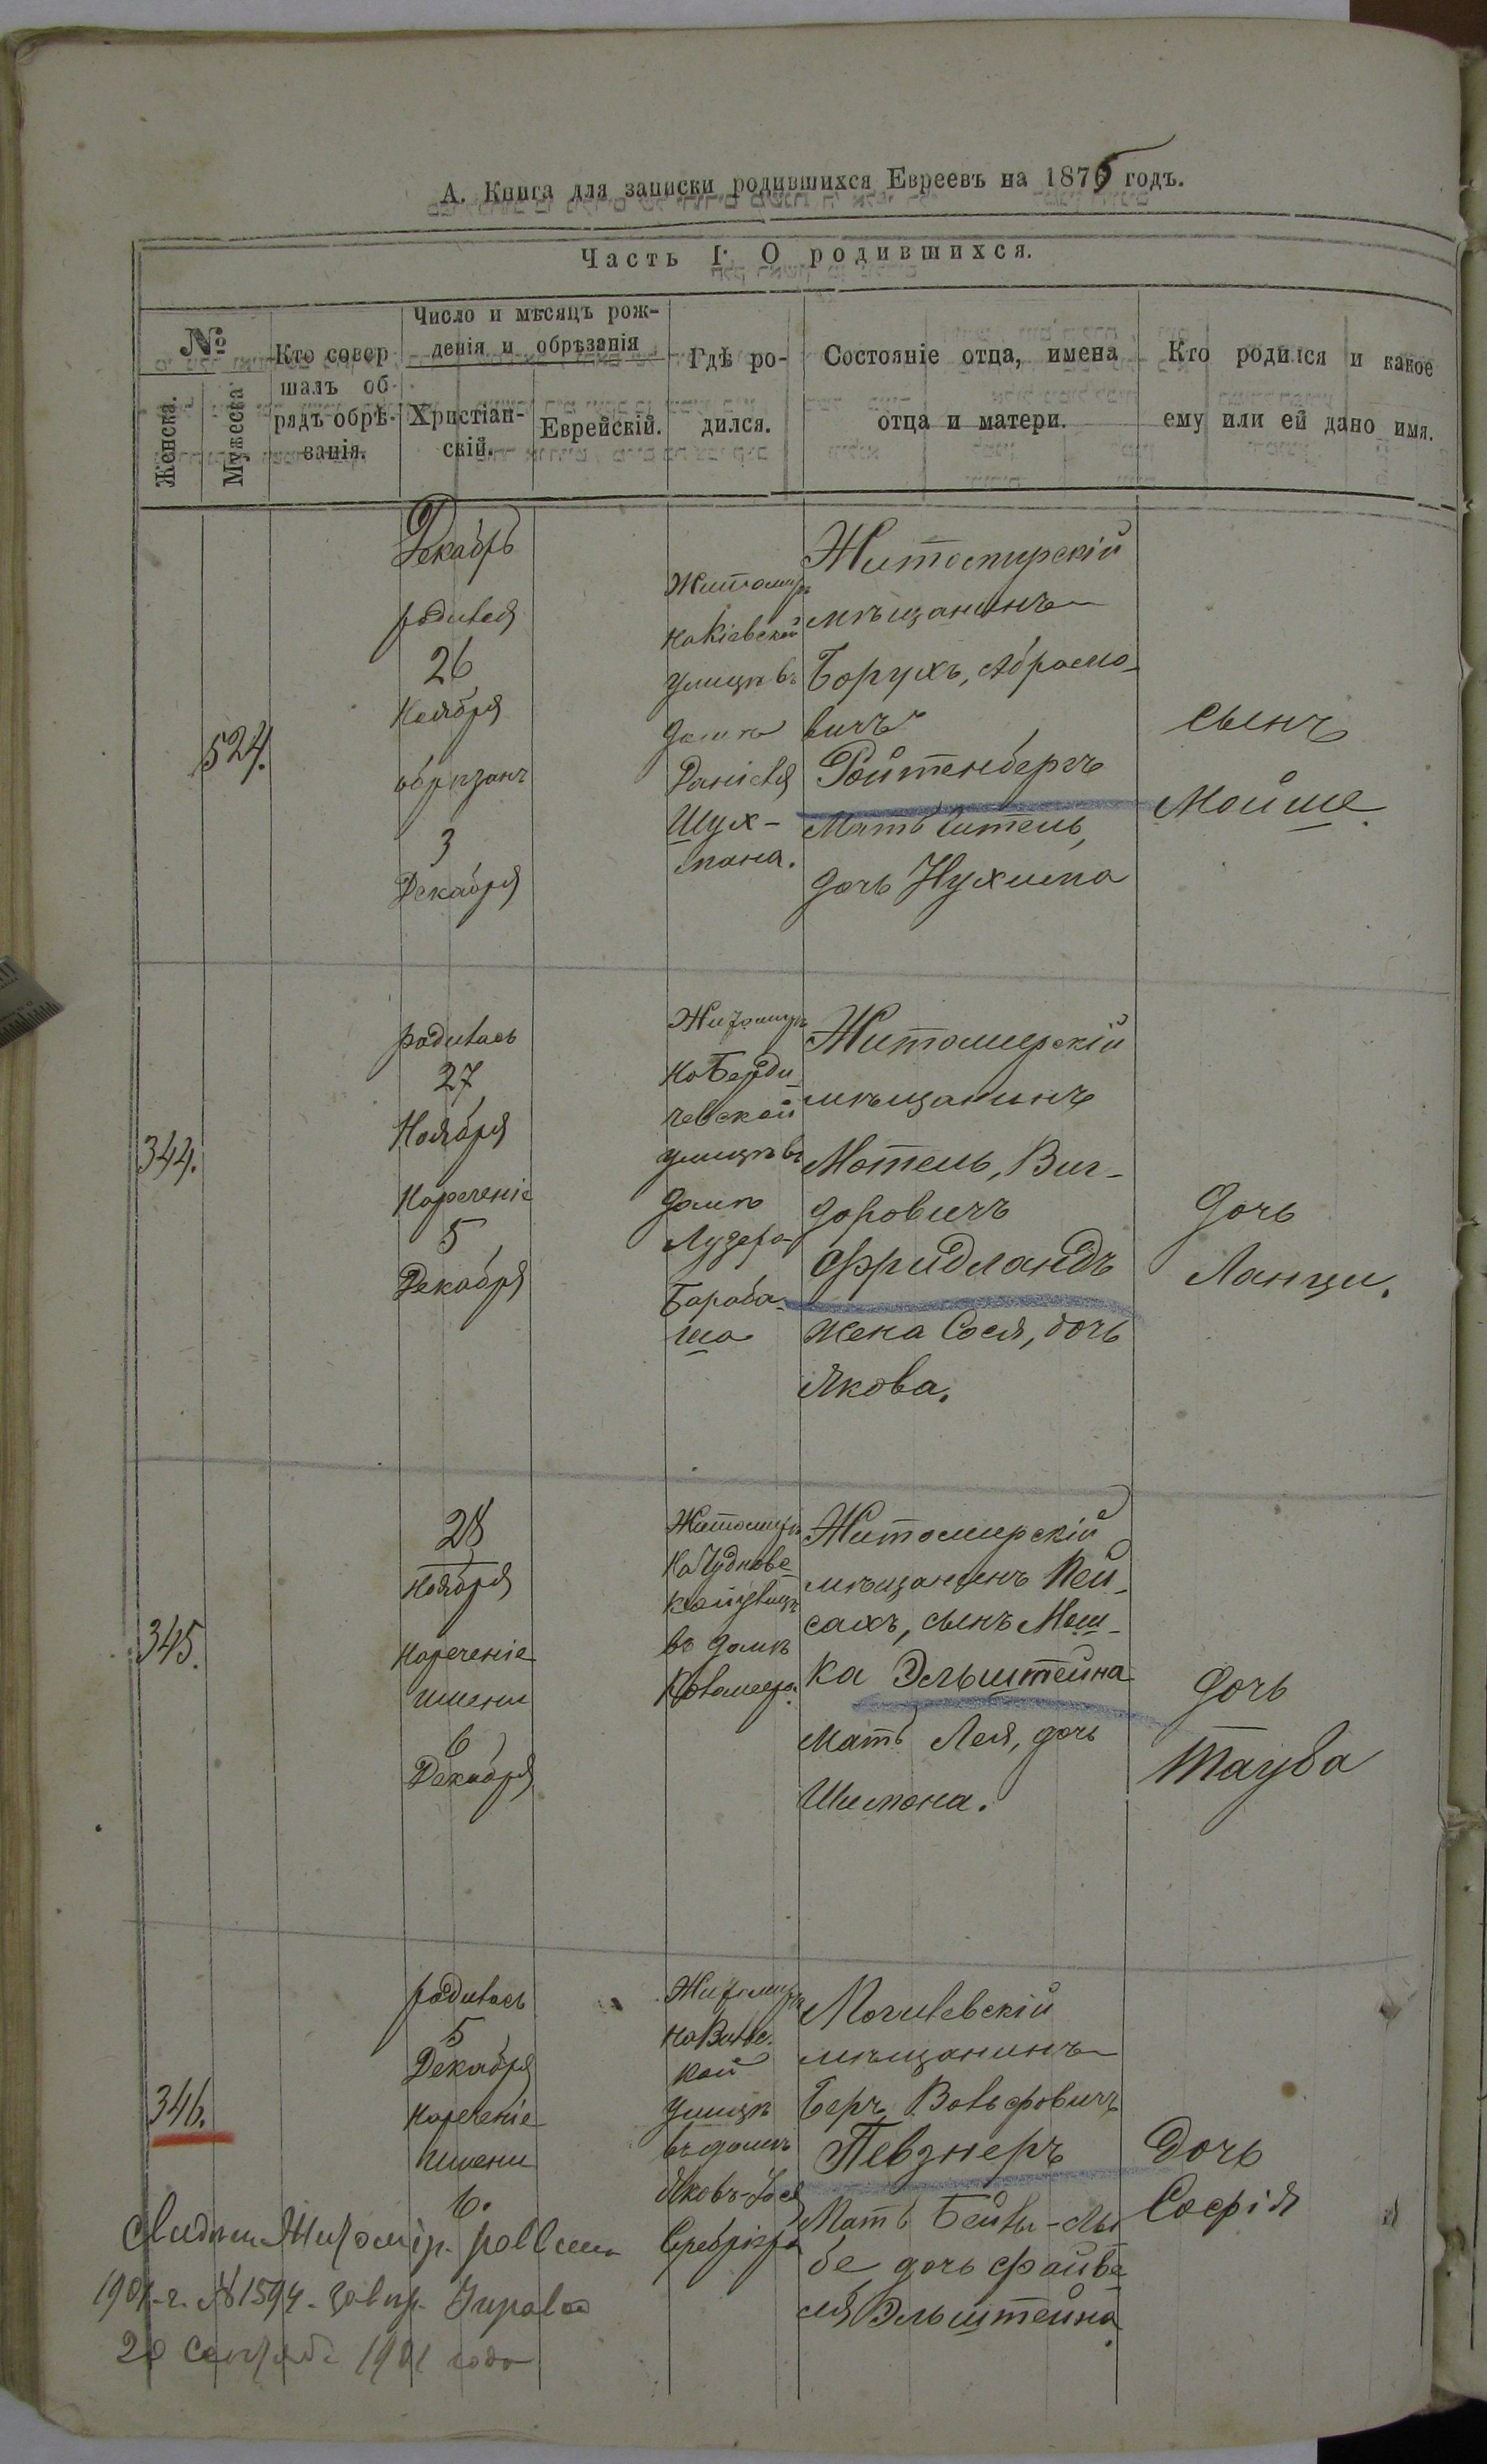 А. Книга для записки родившихся Евреевъ на 1875 годъ.
Часть I. О родившихся.
№
Женска.
Мужеска
Кто совер
шалъ об-
рядъ обрѣ-
занія.
Число и мѣсяцъ рож-
денія и обрѣзанія
Христіан-
скій.
Еврейскій.
Гдѣ ро-
дился.
Состояніе отца, имена
отца и матери.
Кто родился и какое
ему или ей дано имя.
524.
Декабрь
родился
26
Ноября
обрѣзанъ
3
Декабря
Житомиръ
на Кіевской
улицѣ въ
домѣ
Даніеля
Шух-
мана.
Житомирскій
мѣщанинъ
Борухъ, Абрамо-
вичъ
Ройтенбергъ
Мать Гитель,
дочь Нухима
сынъ
Мойше.
344.
родилась
27
Ноября
Нареченіе
5
Декабря
Житомиръ
на Берди-
чевской
улицѣ въ
домѣ
Лузера
Бараба-
ша
Житомирскій
мѣщанинъ
Мотель, Виг-
доровичъ
Фридландъ
жена Сося, дочь
Якова.
Дочь
Ланци.
345.
28
Ноября
Нареченіе
имени
6
Декабря
Житомиръ
на Чуднovс-
кой улицѣ
въ домѣ
Житомирскій
мѣщанинъ Пей-
сахъ, сынъ Мош-
ка Эльштейна
Мать Лея, дочь
Шимона.
Дочь
Тауба
346.
родилась
5
Декабря
Нареченіе
имени
6.
Житомиръ
на Вильс-
кой
улицѣ
въ домѣ
Яковъ-Іося
Могилевскій
мѣщанинъ
Беръ Вольфовичъ
Певзнеръ
Мать Бейлы-Лы
бе дочь Файве-
ля Эльштейна.
Дочь
Софія
Житомір.
1901 г. № 1594.
20 1901 года